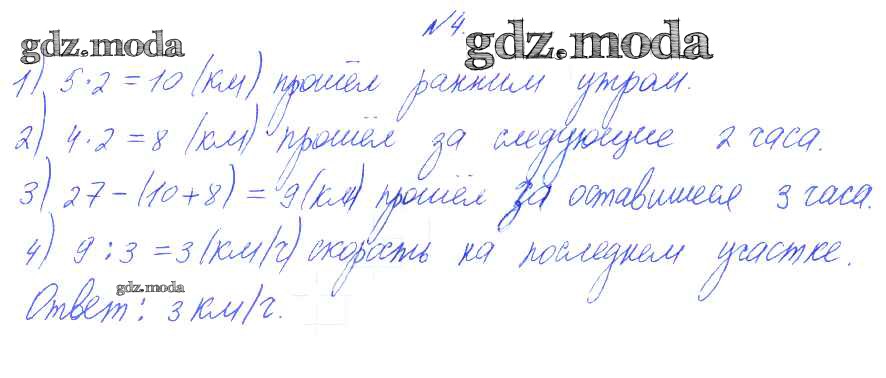 №4.
gdz.moda gdz.moda
1) 5·2=10 (км) прошёл ранним утром.
2) 4·2=8 (км) прошёл за следующие 2 часа.
3) 27-(10+8)=9(км) прошёл за оставшиеся 3 часа.
4) 9:3=3(км/ч) скорость на последнем участке.
gdz.moda
Ответ: 3 км/ч.